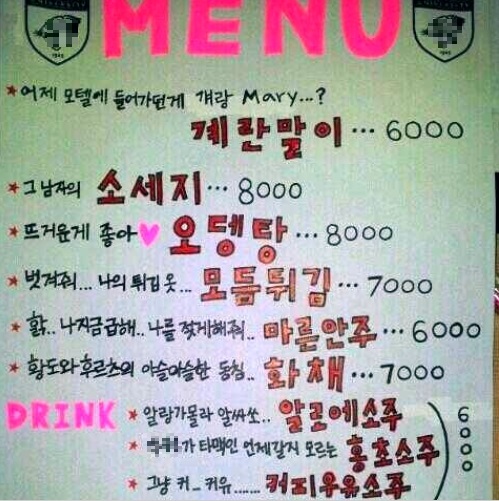 MENU
★어제 모텔에 들어가던게 걔랑 Mary...?
계란말이... 6000
★그 남자의 소세지... 8000
★뜨거운게 좋아♥ 오뎅탕... 8000
★벗겨줘... 나의 튀김옷... 모듬튀김... 7000
★핡.. 나지금급해.. 나를 젖게해줘.. 마른안주... 6000
★황도와후르츠의 아슬아슬한 동침.. 화채... 7000
DRINK ★알랑가몰라 알싸쏘.. 알로에소주
★가 타맥인 언제갈지 모르는 홍초소주
★그냥 커_커유...... 커피우유소주
6000